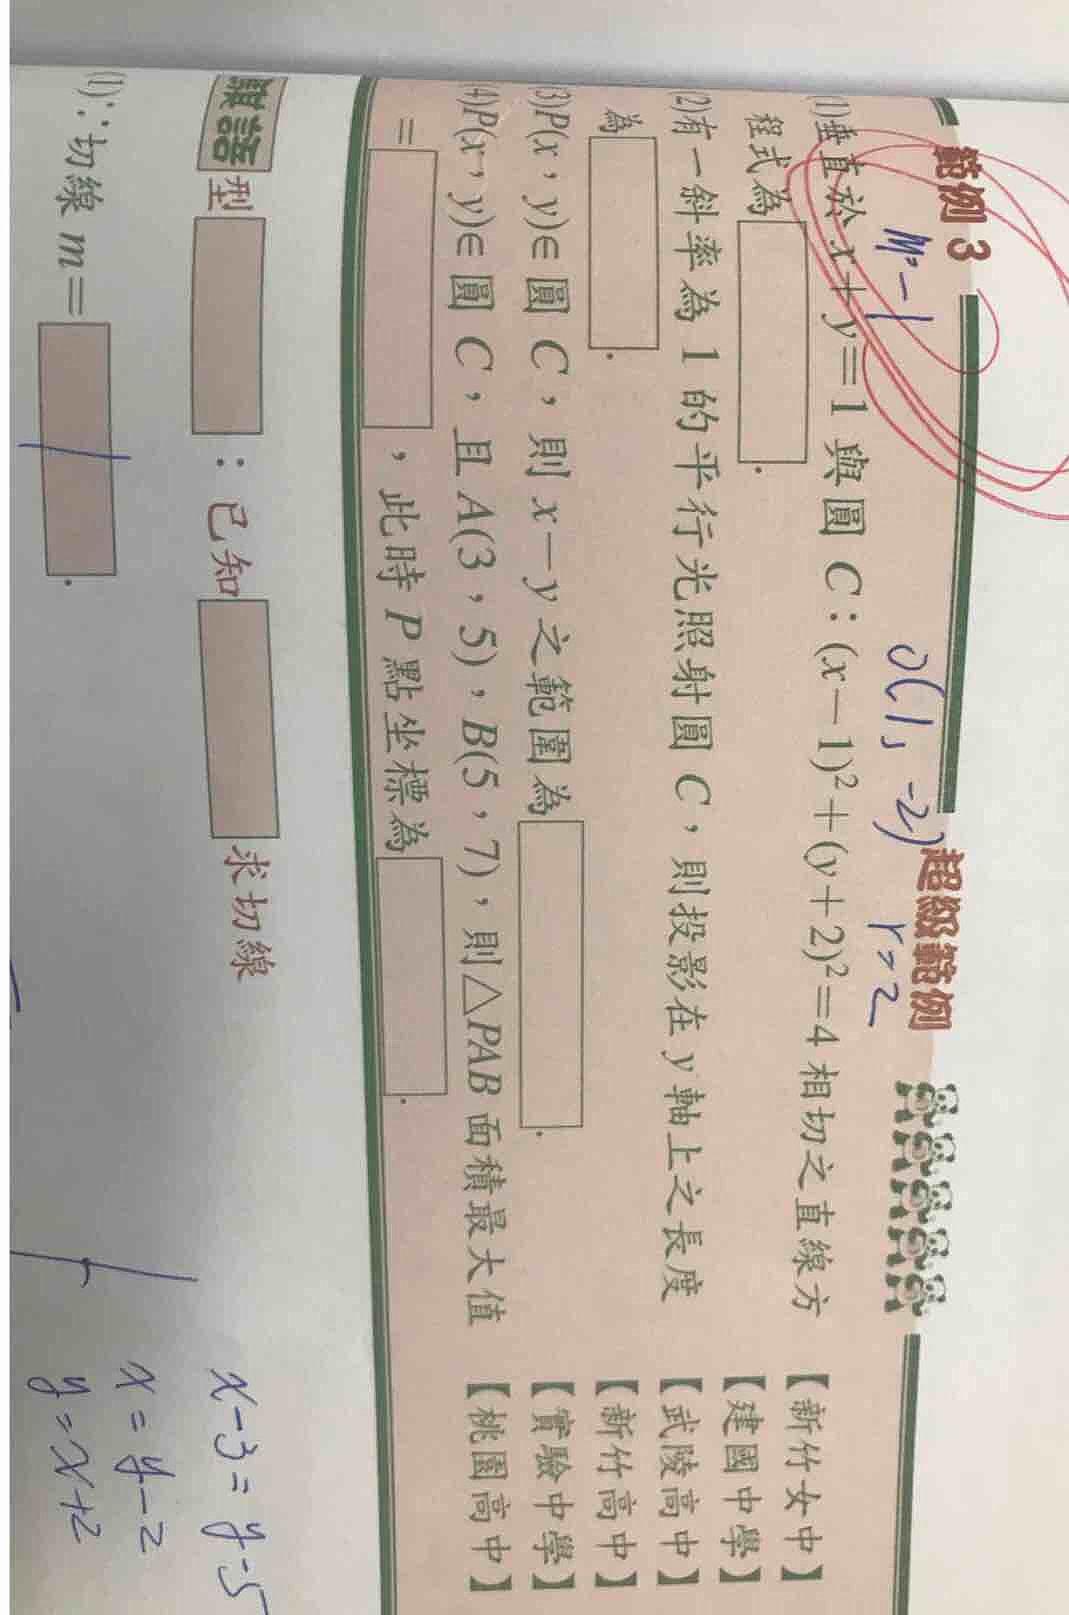 範例 3
超級範例
m=-1
O(1, -2)
r=2
(1)垂直於 x+y=1 與圓 C：(x-1)²+(y+2)²=4 相切之直線方
【新竹女中】
程式為
.
【建國中學】
(2)有一斜率為 1 的平行光照射圓 C，則投影在 y 軸上之長度
【武陵高中】
為
.
【新竹高中】
(3)P(x，y)∈圓 C，則 x-y 之範圍為
.
【實驗中學】
(4)P(x，y)∈圓 C，且 A(3，5)，B(5，7)，則△PAB 面積最大值
【桃園高中】
=
，此時 P 點坐標為
.
型
：已知
求切線
x-3=y-5
x=y-2
y=x+2
(1)∵切線 m=
1
.